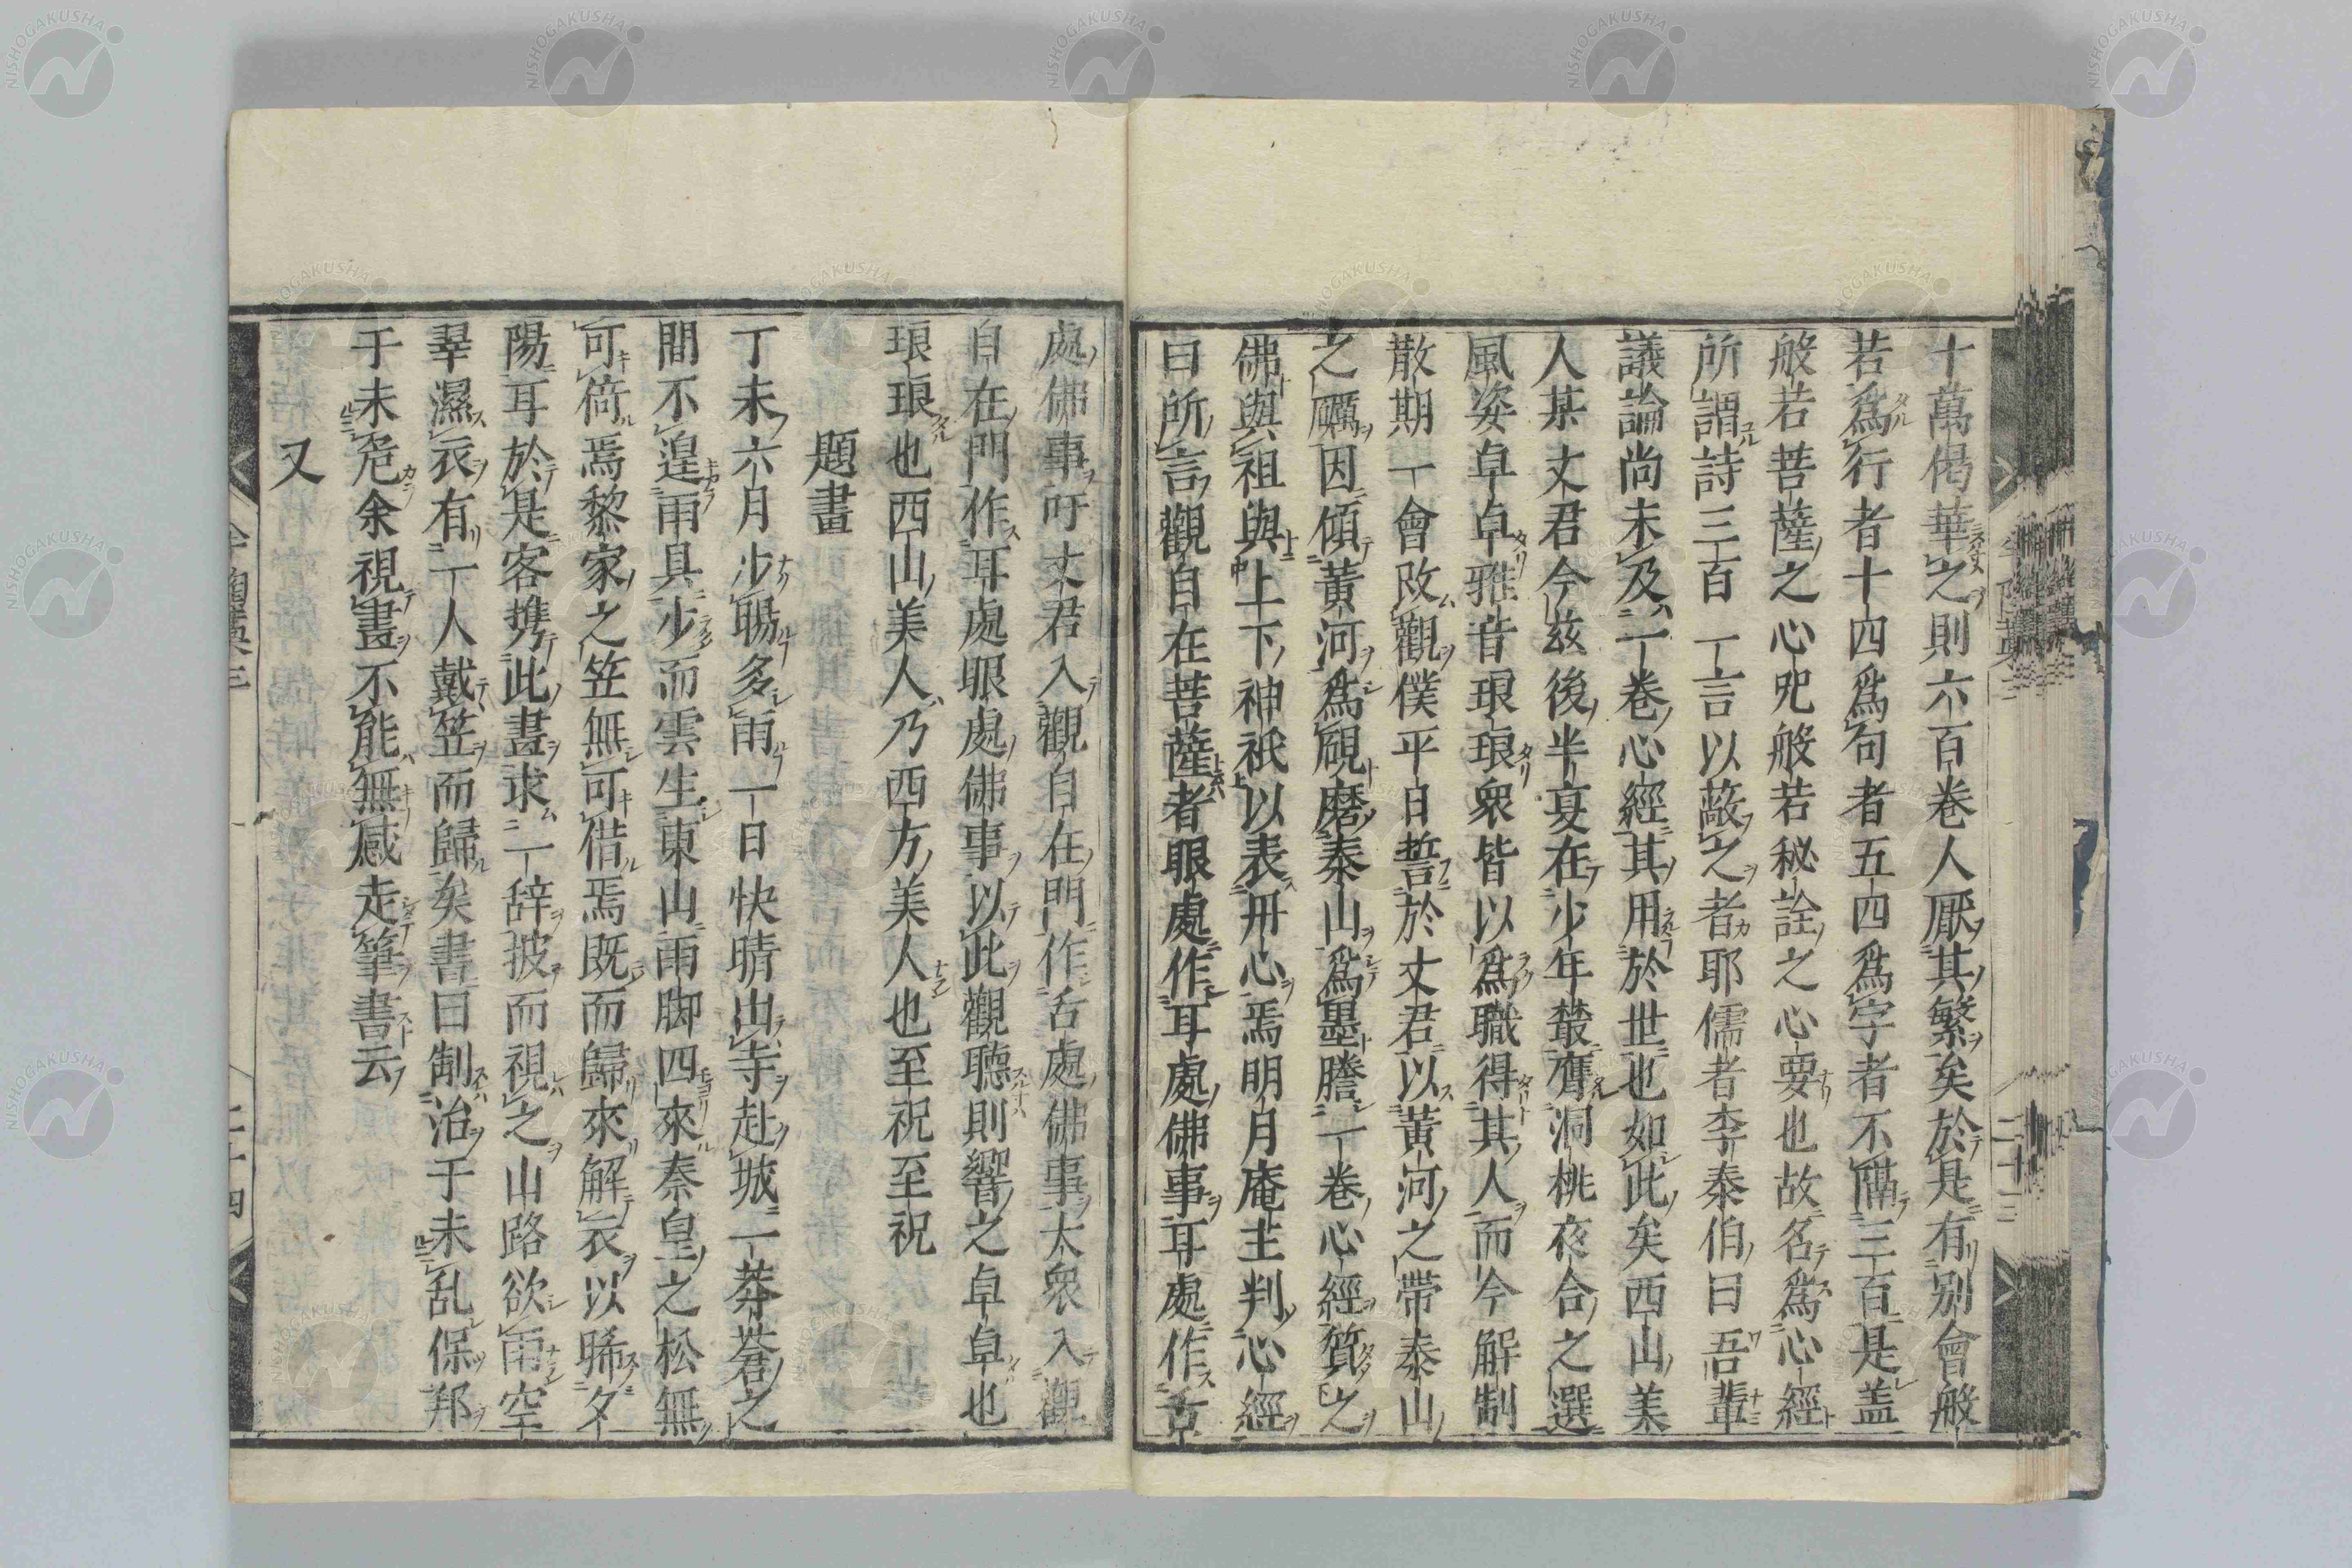 十萬偈華之則六百卷人厭其繁矣於是有別會般
若爲行者十四爲句者五四爲字者不隔三百是盖
般若菩薩之心呪般若秘詮之心要也故名爲心經
所謂詩三百一言以蔽之者耶儒者李泰伯曰吾輩
議論尚未及一卷心經其用於世也如此矣西山美
人某丈君今茲後半夏在少年叢膺洞桃夜合之選
風姿卓卓雅音琅琅衆皆以爲職得其人而今解制
散期一會改觀僕平日誓於丈君以黃河之帶泰山
之礪因傾黃河爲硯磨泰山爲墨謄一卷心經質之
佛與祖與上下神祇以表丹心焉明月庵主判心經
曰所言觀自在菩薩者眼處作耳處佛事耳處作舌
處佛事吁丈君入觀自在門作舌處佛事大衆入觀
自在門作耳處眼處佛事以此觀聽則響之卓卓也
琅琅也西山美人乃西方美人也至祝至祝
題畫
丁未六月少暘多雨一日快晴出寺赴城一莽蒼之
間不遑雨具少而雲生東山雨脚四來秦皇之松無
可倚焉黎家之笠無可借焉既而歸來解衣以晞夕
陽耳於是客携此畫求一辞披而視之山路欲雨空
翠濕衣有一人戴笠而歸矣書曰制治于未乱保邦
于未危余視畫不能無感走筆書云
又
二十三
二十四